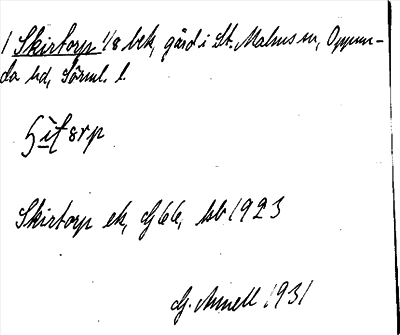 1 Skirtorp 1/8 bek, gård i St. Malms sn, Oppun-
da hd, Sörml. l.
Skirtorp ek, G 66, lsb 1923
G. Annell 1931